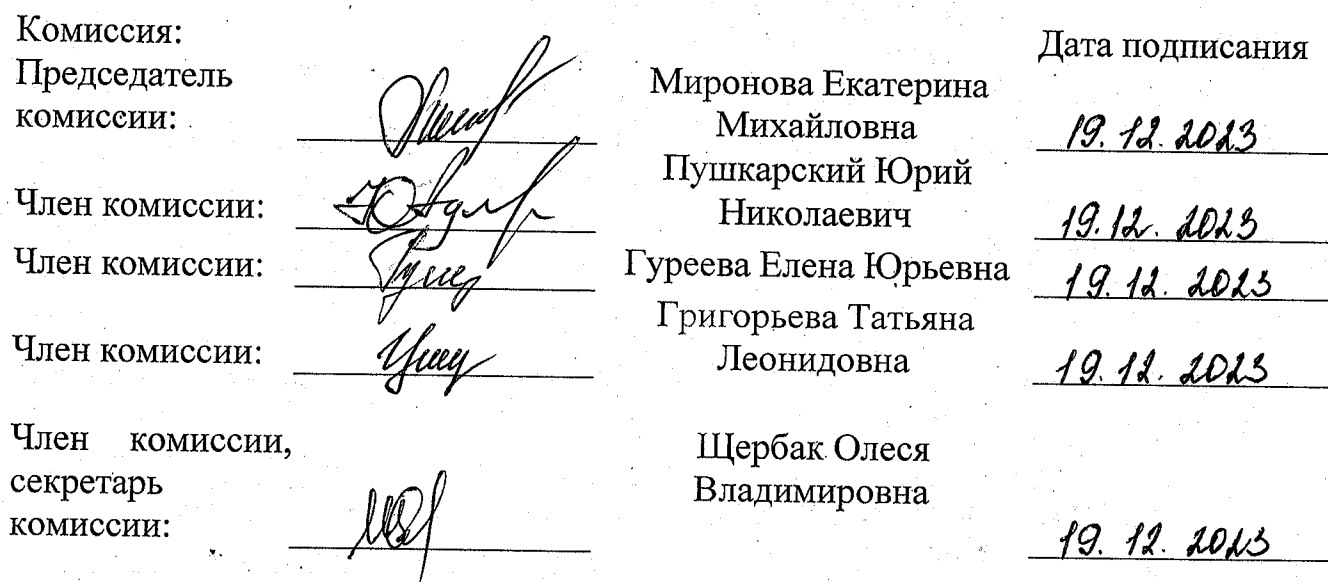 Комиссия:
Дата подписания
Председатель
комиссии:
Миронова Екатерина
Михайловна
19.12.2023
Член комиссии:
Пушкарский Юрий
Николаевич
19.12.2023
Член комиссии:
Гуреева Елена Юрьевна
19.12.2023
Член комиссии:
Григорьева Татьяна
Леонидовна
19.12.2023
Член комиссии,
секретарь
комиссии:
Щербак Олеся
Владимировна
19.12.2023